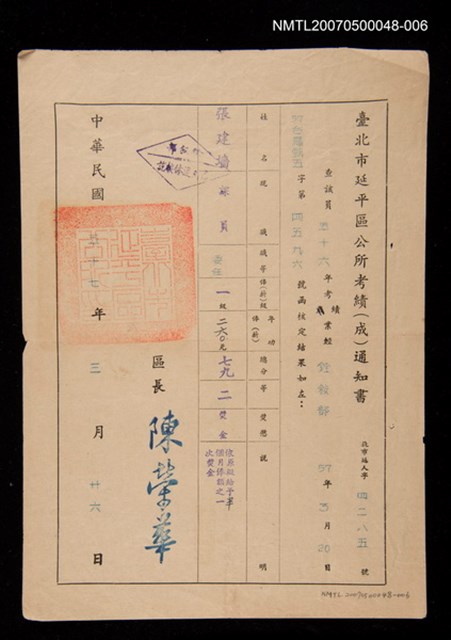 NMTL20070500048-006
臺北市延平區公所考績(成)通知書
北市延人字 四二八五 號
57年3月26日
查該員五十六年考績業經 銓敘部
字第 四五九六 號函核定結果如左：
姓名
職
職等
俸(薪)級
年功俸(薪)
總分
等
獎懲
說明
張建墻
課員
委任
一級
二六〇元
七九
二
獎金
依原級給予
個月俸額之一
次獎金
中華民國 五十七 年 三 月 廿六 日
區長 陳榮華
NMTL20070500048-006